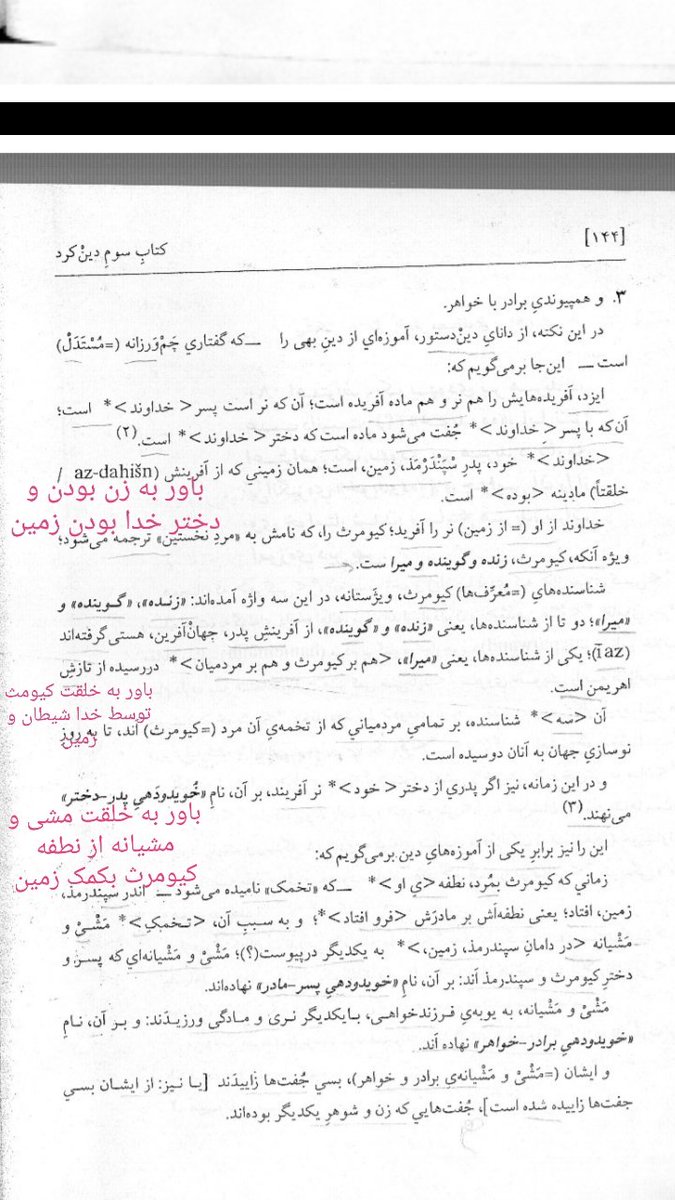 [۱۴۴]
کتابِ سومِ دینْ‌کرد
۳. و همپیوندیِ برادر با خواهر.
در این نکته، از دانایِ دینْ‌دستور، آموزه‌ای از دینِ بهی را ــ که گفتاریِ چَمْ‌وَرزانه (=مُسْتَدَلْ)
است ــ این‌جا برمی‌گویم که:
ایزد، آفریده‌هایش را هم نر و هم ماده آفریده است؛ آن که نر است پسر <خداوند>* است؛
آن که با پسرِ <خداوند>* جُفت می‌شود ماده است که دختر <خداوند>* است.(۲)
<خداوند>* خود، پدرِ سْپَنْدَرْمَذ، زمین، است؛ همان زمینیِ که از آفرینش (az-dahišn /
خلقتاً) مادینه <بوده>* است.
باور به زن بودن و
دختر خدا بودن زمین
خداوند از او (= از زمین) نر را آفرید؛ کیومرث را، که نامش به «مردِ نخستین» ترجمه می‌شود؛
ویژه آنکه، کیومرث، زنده و گوینده و میرا ست.
شناسنده‌هایِ (=مُعرِّف‌ها) کیومرث، ویژَستانه، در این سه واژه آمده‌اند: «زنده»، «گوینده» و
«میرا»؛ دو تا از شناسنده‌ها، یعنی «زنده» و «گوینده»، از آفرینشِ پدر، جهانْ‌آفرین، هستی گرفته‌اند
(ī az)؛ یکی از شناسنده‌ها، یعنی «میرا»، <هم بر کیومرث و هم بر مردمیان>* دررسیده از تازشِ
اهریمن است.
باور به خلقت کیومث
توسط خدا شیطان و
زمین
آن <سه>* شناسنده، بر تمامیِ مردمیانی که از تخمه‌ی آن مرد (=کیومرث) اند، تا به روزِ
نوسازیِ جهان به آنان دوسیده است.
و در این زمانه، نیز اگر پدری از دختر <خود>* نر آفریند، بر آن، نامِ «خُویدودَهیِ پدر-دختر»
می‌نهند.(۳)
باور به خلقت مشی و
مشیانه از نطفه
کیومرث بکمک زمین
این را نیز برابرِ یکی از آموزه‌هایِ دین برمی‌گویم که:
زمانی که کیومرث بمُرد، نطفه <یِ او>* ــ که «تخمک» نامیده می‌شود ــ اندر سپندرمذ،
زمین، افتاد؛ یعنی نطفه‌اَش بر مادرَش <فرو افتاد>*؛ و به سببِ آن، <تخمکیِ>* مَشْیْ و
مَشْیانه <در دامانِ سپندرمذ، زمین،>* به یکدیگر درپیوست(؟)؛ مَشْیْ و مَشْیانه‌ای که پسر و
دخترِ کیومرث و سپندرمذ اَند: بر آن، نامِ «خویدودهیِ پسر-مادر» نهاده‌اند.
مَشْیْ و مَشْیانه، به یوبه‌یِ فرزندخواهی، بایکدیگر نری و مادگی ورزیدَند: و بر آن، نامِ
«خویدودهیِ برادر-خواهر» نهاده اَند.
و ایشان (=مَشْیْ و مَشْیانه‌یِ برادر و خواهر)، بسیِ جُفت‌ها زاییدَند [یا نیز: از ایشان بسی
جفت‌ها زاییده شده است]، جُفت‌هایی که زن و شوهرِ یکدیگر بوده‌اند.